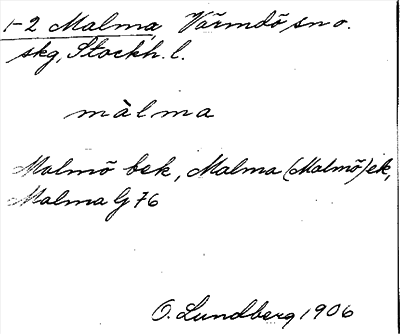 1-2 Malma, Värmdö sn o.
skg, Stockh. l.
màlma
Malmö bek, Malma (Malmö) ek,
Malma G 76
O. Lundberg 1906